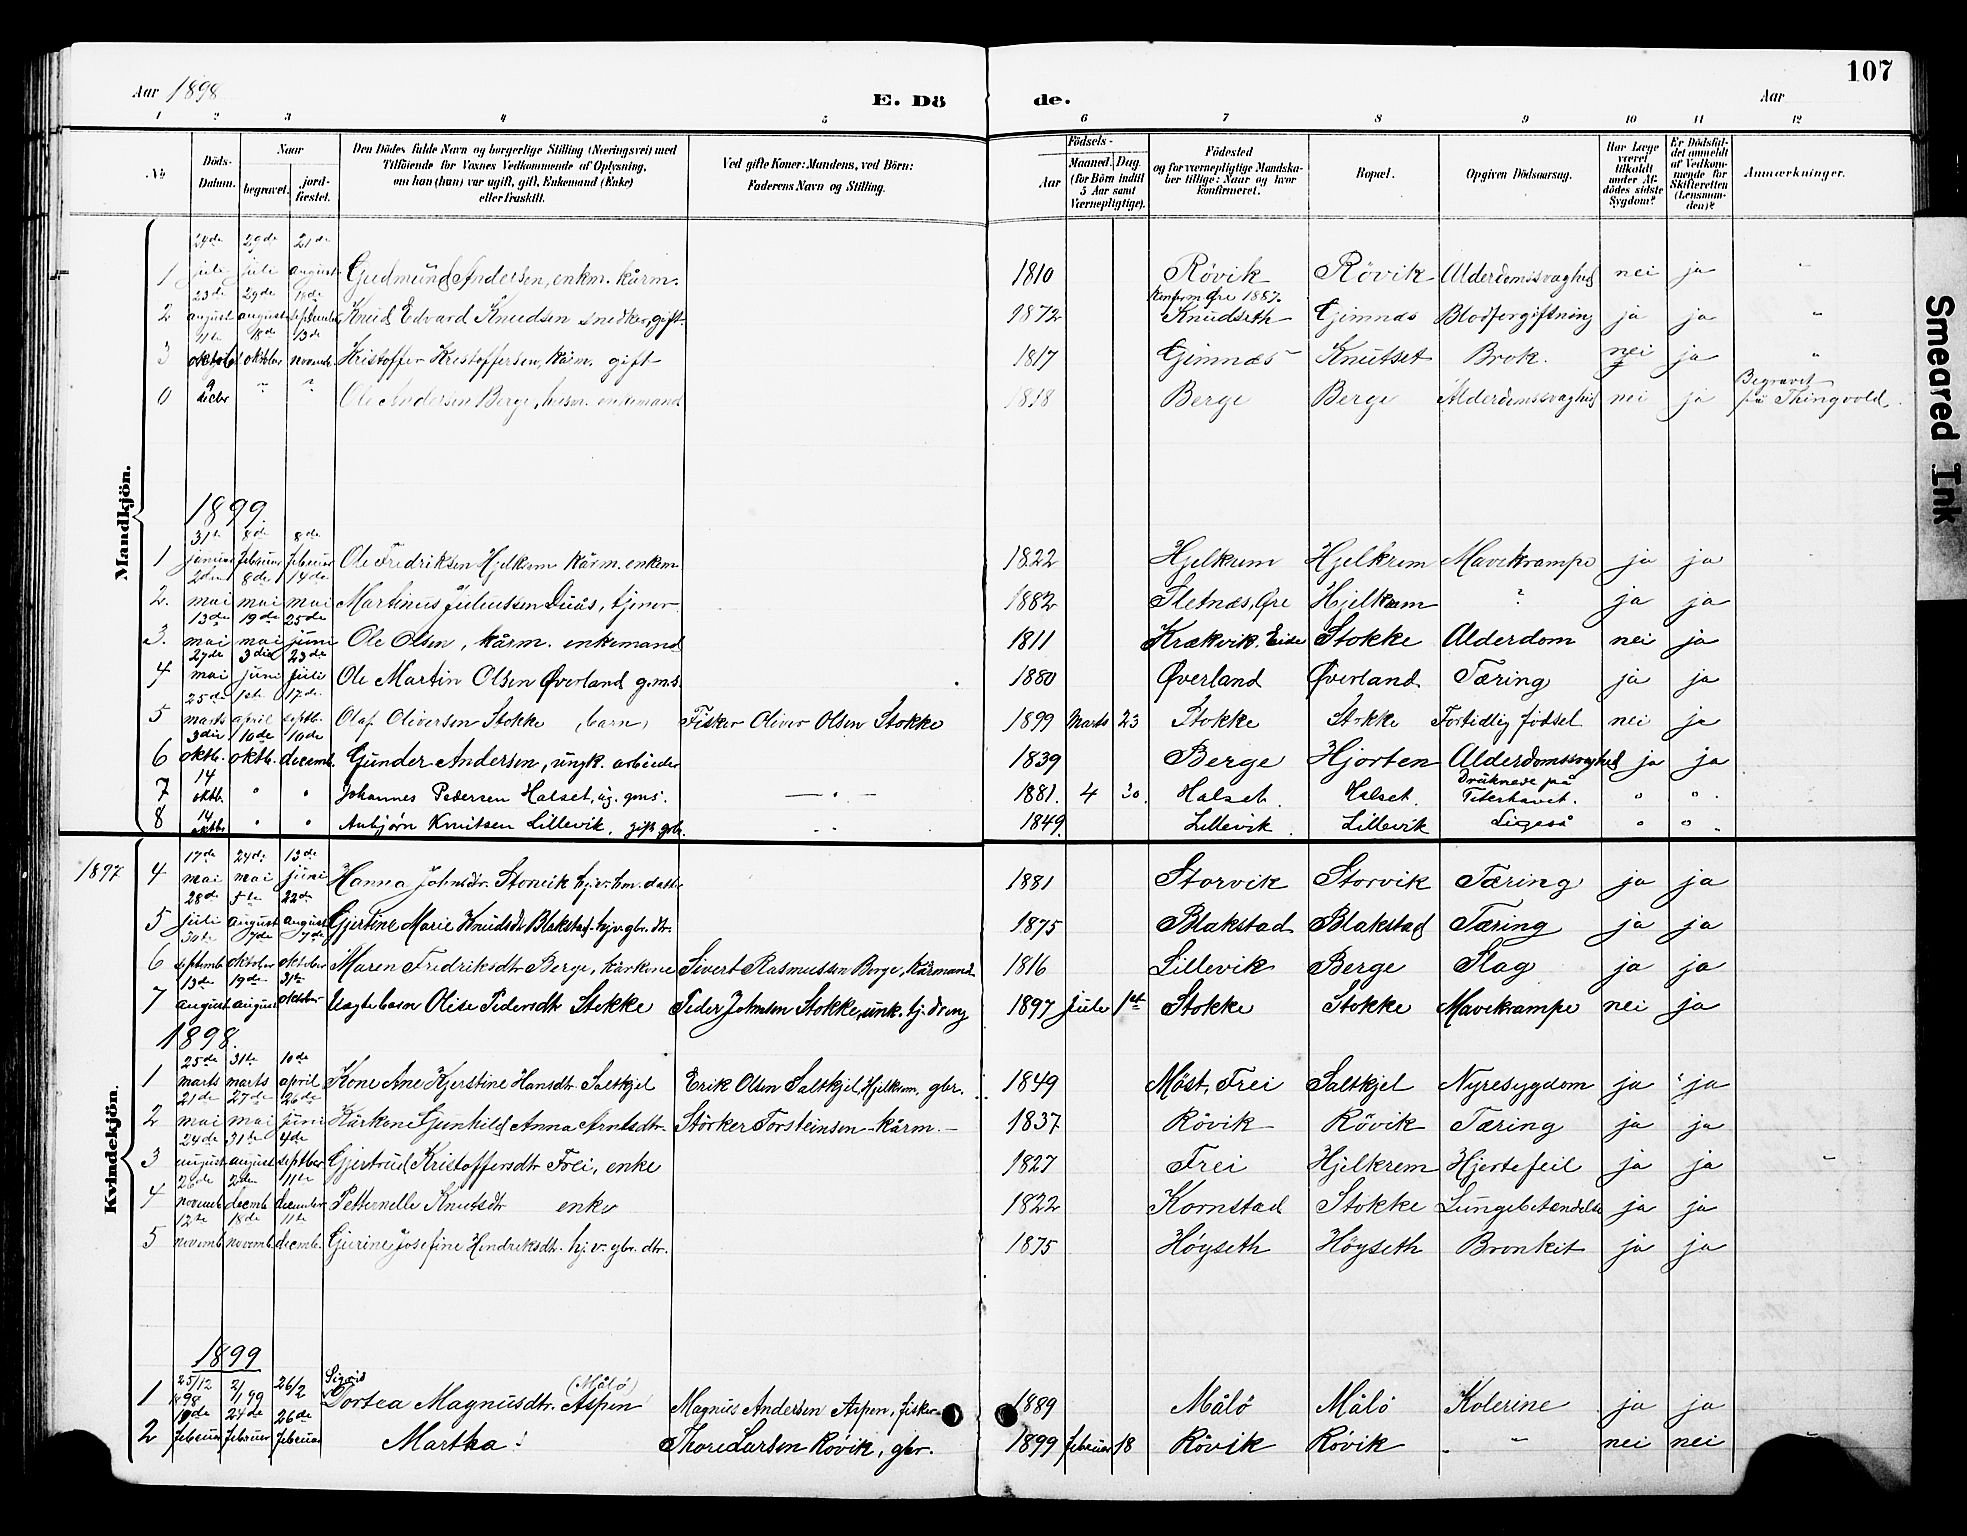 107
Aar 1898 E. Dö de. Aar
1 2 3 4 5 6 7 8 9 10 11 12
No
Döds-Datum.
Naar begravet. jord-fæstet.
Den Dödes fulde Navn og borgerlige Stilling (Næringsvei) med
Tilföiende for Voxnes Vedkommende af Oplysning,
om han (hun) var ugift, gift, Enkemand (Enke)
eller fraskilt.
Ved gifte Koner: Mandens, ved Börn:
Faderens Navn og Stilling.
Födsels-
Aar Maaned. Dag.
(for Börn indtil
5 Aar samt
Værnepligtige).
Födested
og for værnepligtige Mandska-
ber tillige: Naar og hvor
konfirmeret.
Bopæl.
Opgiven Dödsaarsag.
Har Læge
været
tilkaldt
under Af-
dödes sidste
Sygdom?
Er Dödsfal-
det anmeldt
af Vedkom-
mende for
Skifteretten
(Lensman-
den)?
Anmærkninger.
Mandkjön.
24de 29de 21de
1 juli juli august Gudmund Andersen, enkm. kårm. 1810 Rövik Rövik Alderdomssvaghed nei ja "
23de 29de 18de Konfirm Øre 1887.
2 august august septmber Knud Edvard Knudsen snedker, gift 1872 Knudseth Gimnæs Blodforgiftning ja ja "
11te 18de 13de
3 oktober oktober novemb. Kristoffer Kristoffersen, kårm. gift 1817 Gimnæs Knutset Brok. nei ja "
9 Begravet
0 decbr " " Ole Andersen Berge, husm. enkemand 1818 Berge Berge Alderdomssvaghed nei ja på Thingvold.
1899
31te 8de 8de
1 januar februar februar Ole Fredriksen Hjelkrem kårm. enkem 1822 Hjelkrem Hjelkrem Mavekrampe ja ja
2den 8de 14de
2. mai mai mai Martinus Juliussen Duås, tjener 1882 Sletnæs, Øre Hjelkrem ? ja ja
13de 19de 25de
3. mai mai juni Ole Olsen, kårm. enkemand 1811 Krækvik. Eide Stokke Alderdom nei ja
27de 3die 23de
4 mai juni juli Ole Martin Olsen Øverland g.m.s. 1880 Øverland Øverland Tæring ja ja
25de 1ste 17de
5 marts april septbr. Olaf Oliversen Stokke (barn) Fisker Oliver Olsen Stokke 1899 Marts 23 Stokke Stokke Fortidlig födsel nei ja
3die 10de 10de
6 oktb. oktb. decemb. Gunder Andersen, ungk. arbeider 1839 Berge Hjorten Alderdomssvaghed ja ja
14 Druknede på
7 oktb. " " Johannes Pedersen Halset, ug. gms. — " — 1881. 4 30. Halset. Halset. Titerhavet. " "
14
8 oktbr " " Anbjørn Knutsen Lillevik, gift gbr. 1849. Lillevik. Lillevik Ligeså " "
Kvindekjön
17de 24de 13de
1897 4 mai mai juni Hanna Johnsdtr. Storvik hj.v. hm. datter 1881 Storvik Storvik Tæring ja ja
28de 5te 22de
5 juli august august Gjertine Marie Knudsdtr Blakstad hjv. gbr. dtr. 1875 Blakstad Blakstad Tæring ja ja
30te 7de 7de
6 septemb oktober oktober Maren Fredriksdtr Berge, kårkone Sivert Rasmussen Berge, kårmand 1816 Lillevik Berge Slag ja ja
13de 19de 31te
7 august august oktober Uægte barn Olise Pedersdt Stokke Peder Johnsen Stokke, unk. tj. dreng 1897 Juli 1st Stokke Stokke Mavekrampe nei ja
1898.
25de 31te 10de
1 marts marts april Kone Ane Kjerstine Hansdtr. Saltkjel Erik Olsen Saltkjel, Hjelkrem. gbr. 1849 Möst, Frei Saltkjel Nyresygdom ja ja
21de 27de 26de
2 mai mai juni Kårkone Gunhild Anna Arntsdtr. Störker Torsteinsen kårm. 1837 Rövik Rövik Tæring ja ja
24de 31te 4de
3 august august septber Gjertrud Kristoffersdtr Frei, enke 1827 Frei Hjelkrem Hjertefeil ja ja "
26de 2den 11te
4 novemb decemb december Petternelle Knutsdtr enke 1822 Kornstad Stokke Lungebetændelse ja ja
12te 18de 11te
5 novemb. novemb. decemb. Gjerine Josefine Hendriksdtr. hj.v. gbr. dtr. 1875 Höyseth Höyseth Bronkit ja ja
1899
25/12 2/1 26/2 Sigrid (Målö)
1 1898 99 Dortea Magnusdtr. Aspen Magnus Andersen Aspen, fisker 1889 Målö Målö Kolerine ja ja
19de 24de 26de
2 februar februar februar Martha! Thore Larsen Rövik, gbr. 1899 februar 18 Rövik Rövik " nei nei
Smeared Ink